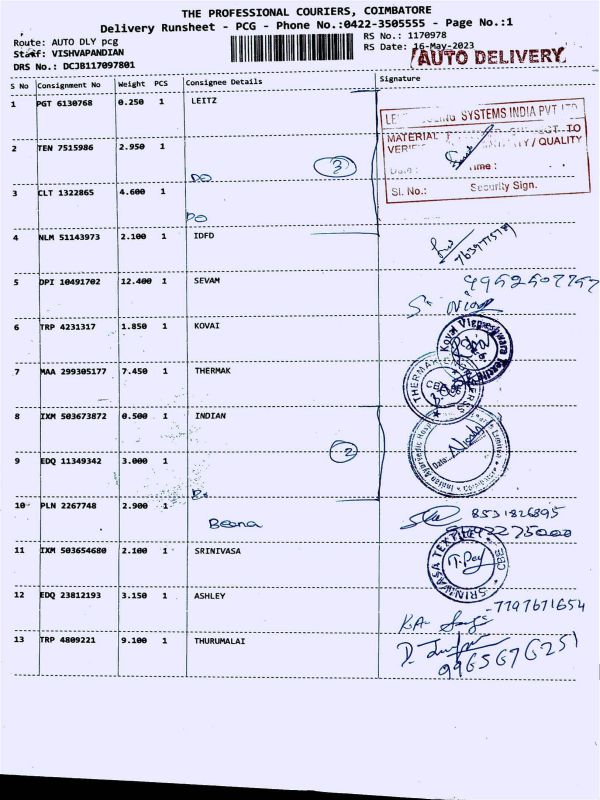 THE PROFESSIONAL COURIERS, COIMBATORE
Delivery Runsheet - PCG - Phone No.:0422-3505555 - Page No.:1
Route: AUTO DLY pcg
RS No.: 1170978
Staff: VISHVAPANDIAN
RS Date: 16-May-2023
AUTO DELIVERY
DRS No.: DCJB117097801
S No Consignment No Weight PCS Consignee Details Signature
1 PGT 6130768 0.250 1 LEITZ
SYSTEMS INDIA PVT LTD
MATERIAL TO
2 TEN 7515986 2.950 1
QUALITY
DO
3
3 CLT 1322865 4.600 1
Sl. No.: Security Sign.
DO
4 NLM 51143973 2.100 1 IDFD
5 DPI 10491702 12.400 1 SEVAM
6 TRP 4231317 1.850 1 KOVAI
7 MAA 299305177 7.450 1 THERMAK
8 IXM 503673872 0.500 1 INDIAN
2
9 EDQ 11349342 3.000 1
10 PLN 2267748 2.900 1
8531826895
Beena
11 IXM 503654680 2.100 1 SRINIVASA
SRINIVASA TEXTILE CBE
12 EDQ 23812193 3.150 1 ASHLEY
-7797671654
13 TRP 4809221 9.100 1 THURUMALAI
9965676251